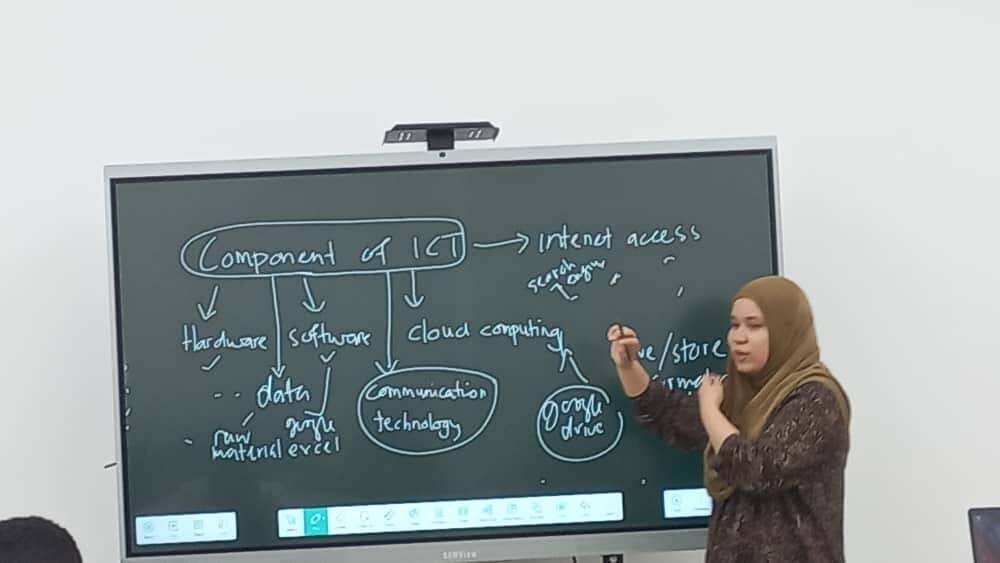 Component of ICT
Intenet access
search
Hardware
software
cloud computing
/store
data
communication
technology
google
drive
raw
material
google
excel